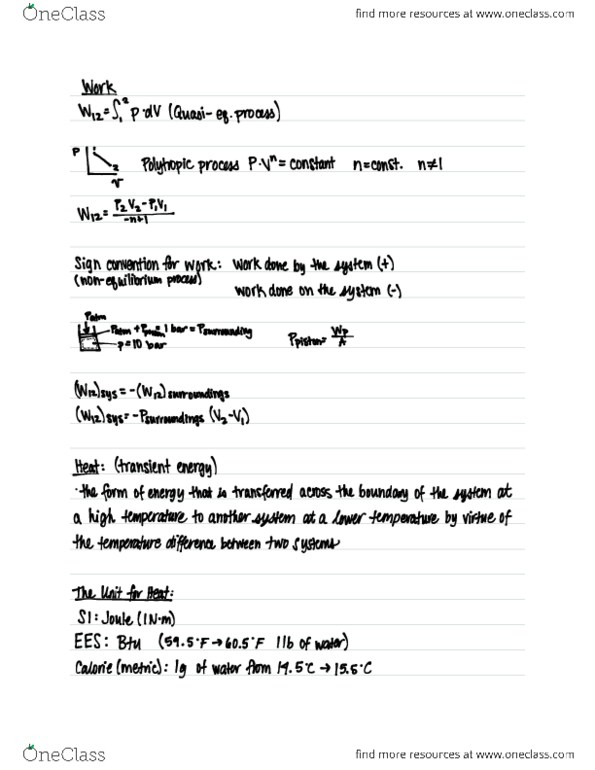 OneClass
find more resources at www.oneclass.com
Work
W12 = ∫₁² P·dV (Quasi-eq. process)
P
2
V
Polytropic process P·Vⁿ = constant n=const. n≠1
W12 = P2V2 - P1V1 / -n+1
Sign convention for work: work done by the system (+)
(non-equilibrium process)
work done on the system (-)
Patm
Patm + Ppiston = 1 bar = Psurrounding
Ppiston = Wp / A
P=10 bar
(W12)sys = -(W12)surroundings
(W12)sys = -Psurroundings (V2-V1)
Heat: (transient energy)
·the form of energy that is transferred across the boundary of the system at
a high temperature to another system at a lower temperature by virtue of
the temperature difference between two systems
The Unit for Heat:
SI: Joule (1N·m)
EES: Btu (59.5°F → 60.5°F 1lb of water)
Calorie (metric): 1g of water from 14.5°C → 15.5°C
OneClass
find more resources at www.oneclass.com